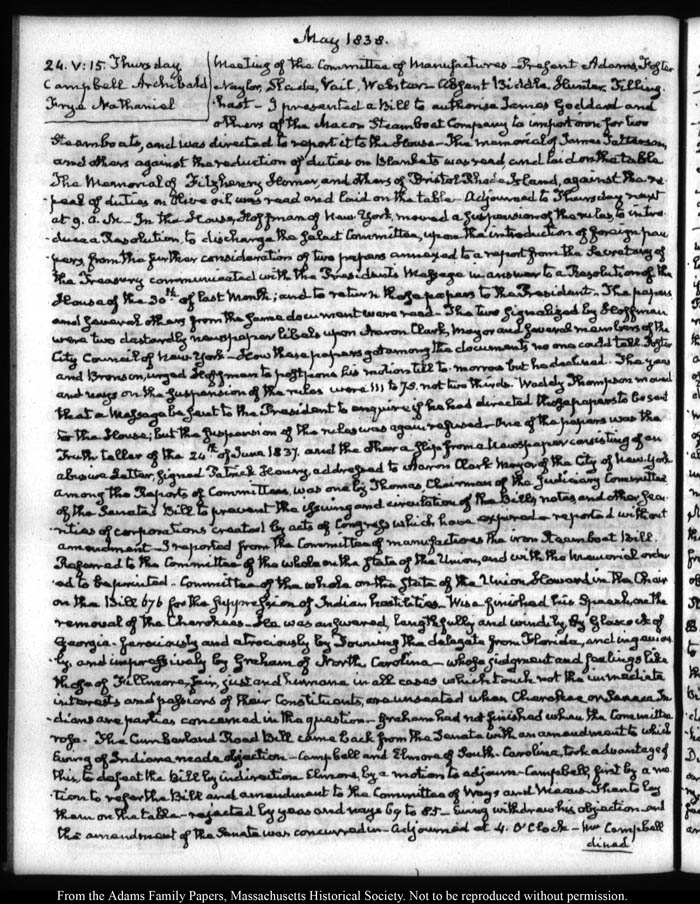 May 1838.
24. V:15. Thursday
Campbell Archibald
Frye Nathaniel
Meeting of the Committee of Manufactures. Present Adams, Foster
Naylor, Slade, Vail, Webster. Absent Biddle, Hunter, Tilling-
hast. I presented a Bill to authorise James Goddard and
others of the Macon Steamboat Company to import iron for two
Steamboats, and was directed to report it to the House. The memorial of James Patterson
and others against the reduction of duties on Blankets was read and laid on the table
The Memorial of Fitzhenry Homer, and others of Bristol Rhode Island, against the re-
peal of duties on Olive oil was read and laid on the table. Adjourned to Thursday next
at 9. A.M. In the House, Hoffman of New York, moved a suspension of the rules, to intro-
duce a Resolution, to discharge the Select Committee, upon the introduction of foreign pau-
pers, from the further consideration of two papers annexed to a report from the Secretary of
the Treasury communicated with the President's Message in answer to a Resolution of the
House of the 30th of last Month; and to return those papers to the President. The papers
and several others from the same document were read. The two signalized by Hoffman
were two dastardly newspaper libels upon Aaron Clark, Mayor and several members of the
City Council of New York. How these papers got among the documents no one could tell. Foster
and Bronson, urged Hoffman to postpone his motion till to-morrow but he declined. The yeas
and nays on the suspension of the rules were 111 to 75. not two thirds. Waddy Thompson moved
that a Message be sent to the President to enquire if he had directed those papers to be sent
to the House; but the suspension of the rules was again refused. One of the papers was the
Truth teller of the 24th of June 1837. and the other a slip from a Newspaper consisting of an
abusive Letter, signed Patrick Henry, addressed to Aaron Clark Mayor of the City of New York
among the Reports of Committees, was one by Thomas, Chairman of the Judiciary Committee
of the Senate's Bill to prevent the issuing and circulation of the Bills, notes and other secu-
rities of corporations created by acts of Congress which have expired. reported without
amendment. I reported from the Committee of manufactures the iron Steamboat Bill.
Referred to the Committee of the whole on the State of the Union, and with the Memorial order-
ed to be printed. Committee of the whole on the State of the Union. Howard in the Chair
on the Bill 676 for the suppression of Indian hostilities. Wise finished his Speech on the
removal of the Cherokees. He was answered, lengthfully and windily by Glascock of
Georgia. ferociously and atrociously by Downing the delegate from Florida, and ingenious-
ly, and impressively by Graham of North Carolina. whose judgment and feelings like
those of Fillmore, fair, just and humane in all cases which touch not the immediate
interests and passions of their Constituents, are unseated when Cherokee or Seneca In-
dians are parties concerned in the question. Graham had not finished when the Committee
rose. The Cumberland Road Bill came back from the Senate with an amendment to which
Ewing of Indiana made objection. Campbell and Elmore of South-Carolina took advantage of
this to defeat the Bill by indirection. Elmore, by a motion to adjourn. Campbell, first by a mo-
tion to refer the Bill and amendment to the Committee of Ways and Means. Then to lay
them on the table. rejected by yeas and nays 69 to 85. Ewing withdrew his objection. and
the amendment of the Senate was concurred in. Adjourned at 4. O'Clock. Campbell
dined
From the Adams Family Papers, Massachusetts Historical Society. Not to be reproduced without permission.